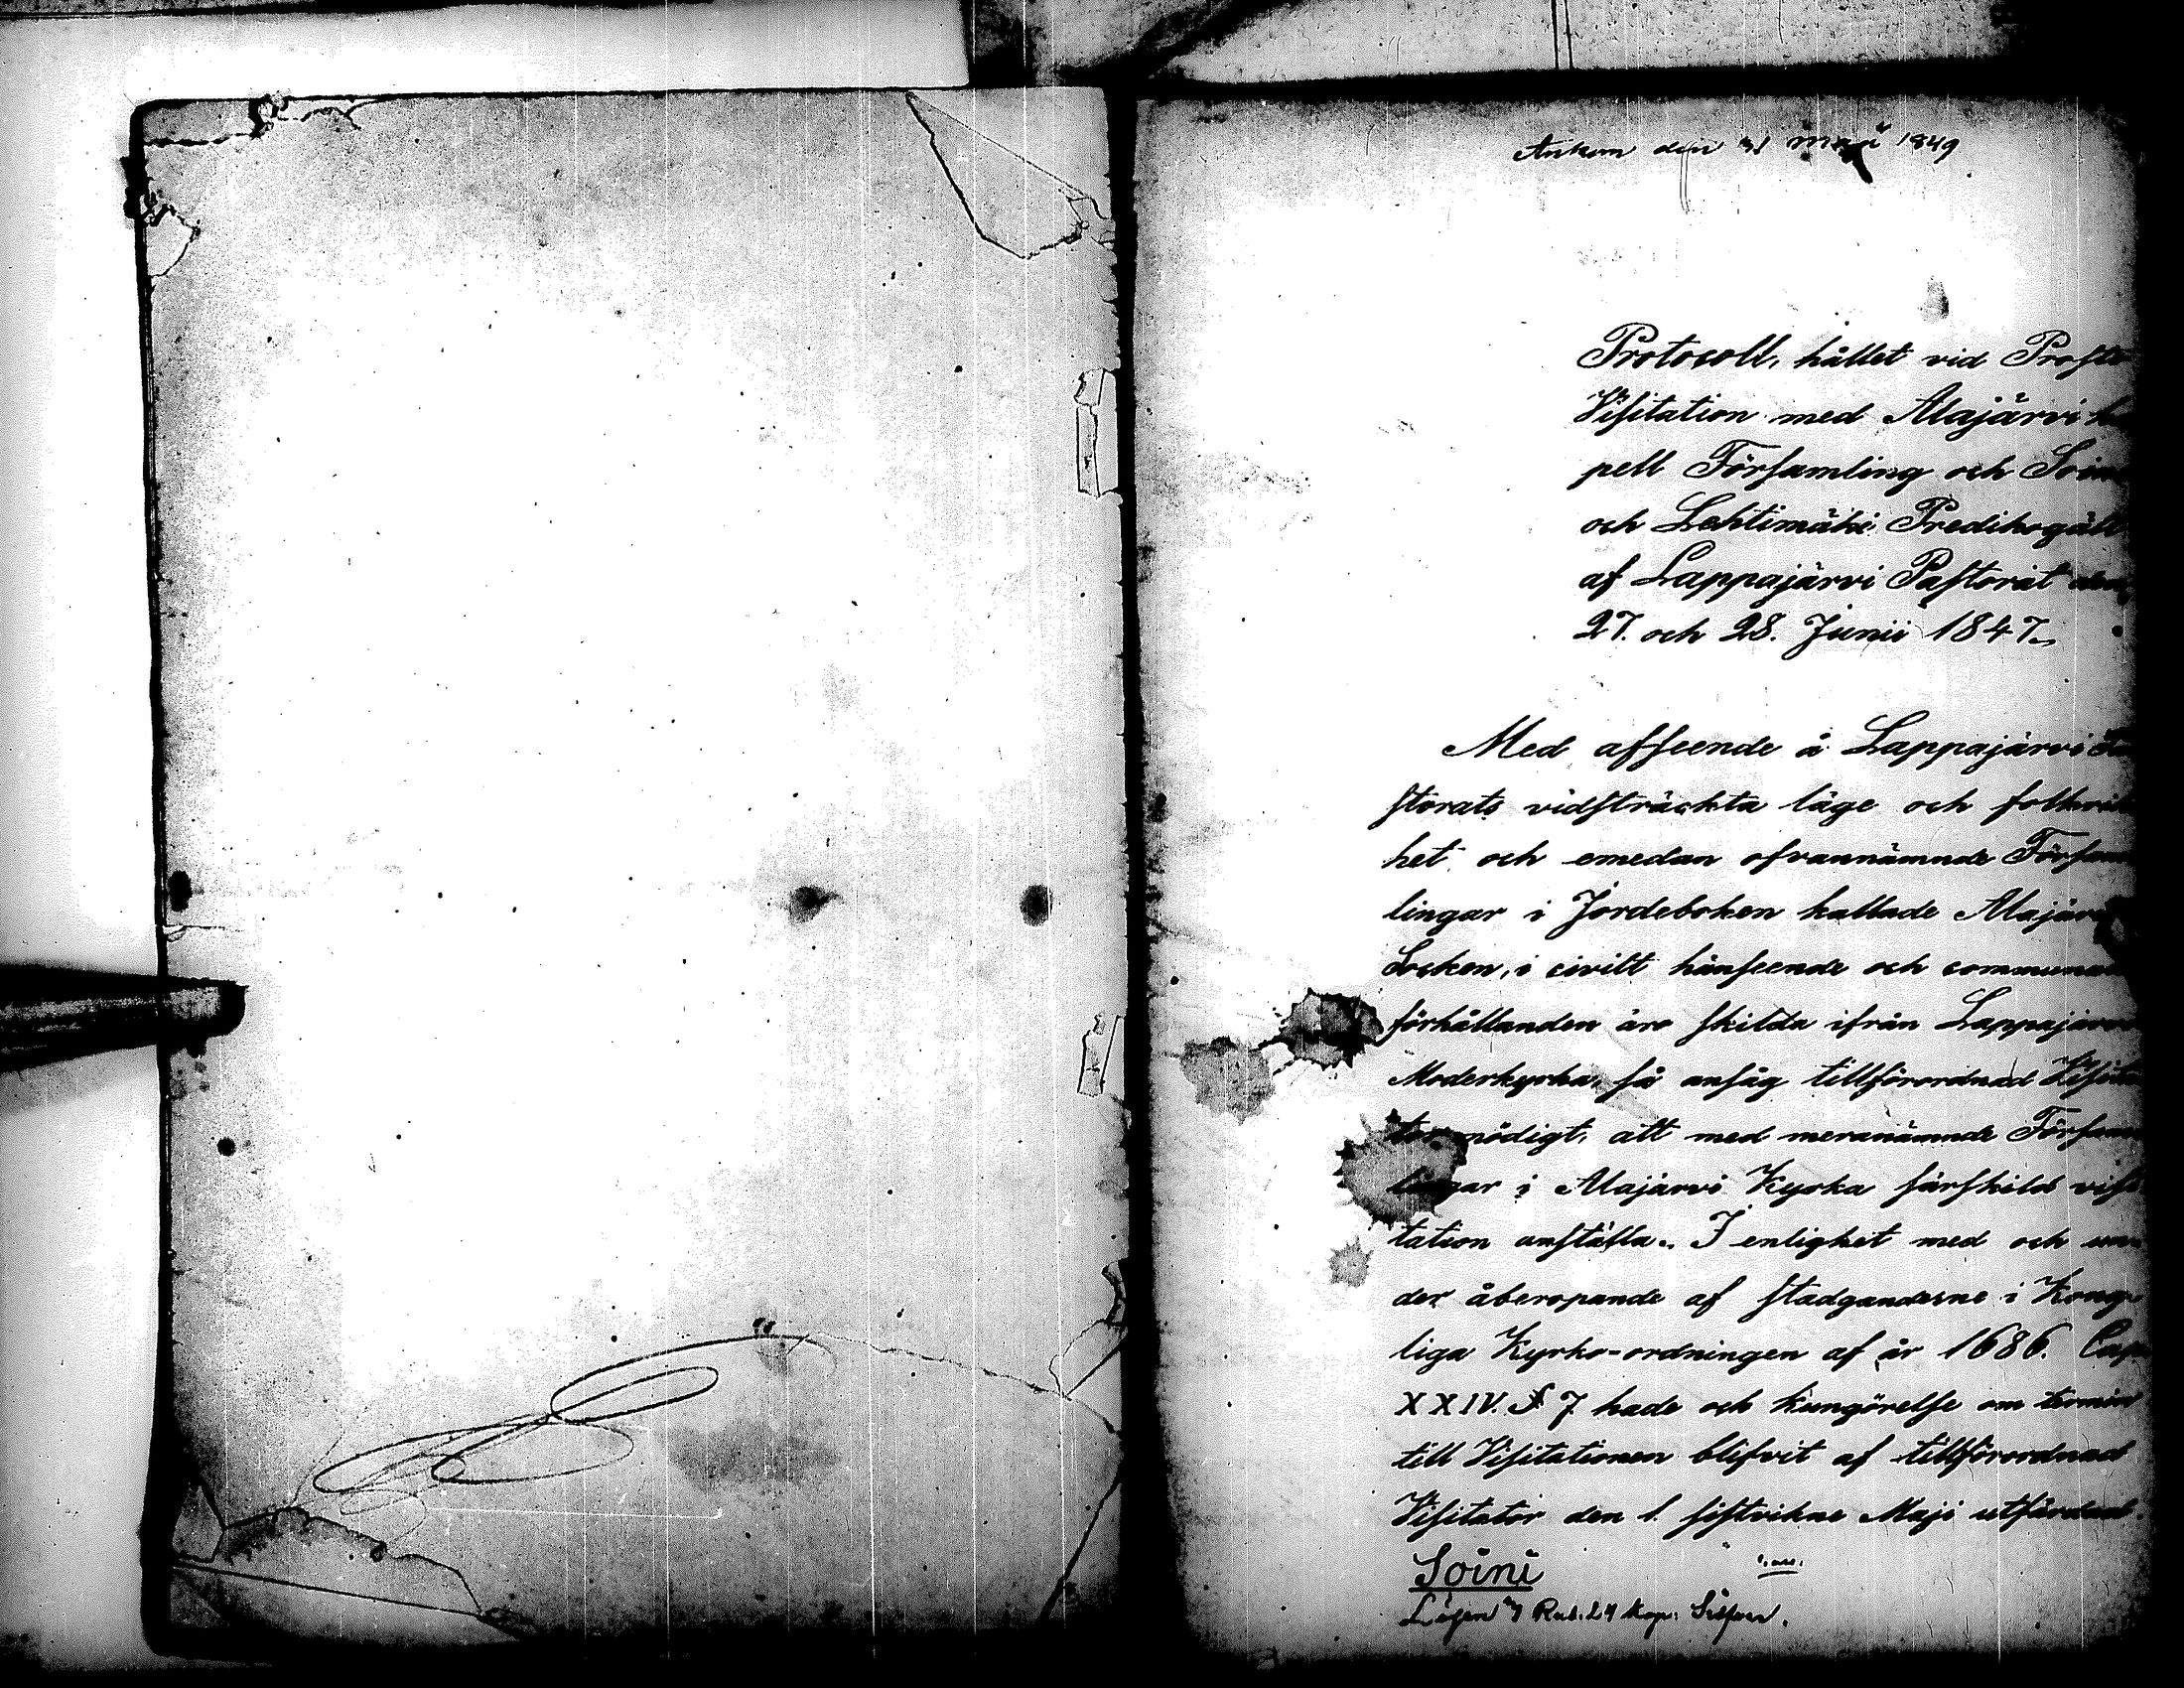 Ankom den 31 Maji 1849
Protocoll, hållet vid Prosts
Visitation med Alajärvi ka
pell Församling och Soini
och Lehtimäki Predikogäll
af Lappajärvi Pastorat den
27. och 28. Junii 1847.
Med afseende å Lappajärvi Pa
storats vidsträckta läge och folkrik
het och emedan ofvannämnde Försam
lingar i Jordeboken kallade Alajärvi
Socken, i civilt hänseende och communal
förhållanden äro skilda ifrån Lappajärvi
Moderkyrka, så ansåg tillförordnad Visita
tor nödigt, att med meranämnde Försam
lingar i Alajärvi Kyrka särskild visi
tation anställa. I enlighet med och un
der åberopande af stadganderne i Kong
liga Kyrko-ordningen af år 1686. Cap.
XXIV. § 7 hade och kungörelse om termin
till Visitationen blifvit af tillförordnad
Visitator den 1. sistvikne Maji utfärdad.
Soini
Lösen Rub. 24 Kop. Silfver.